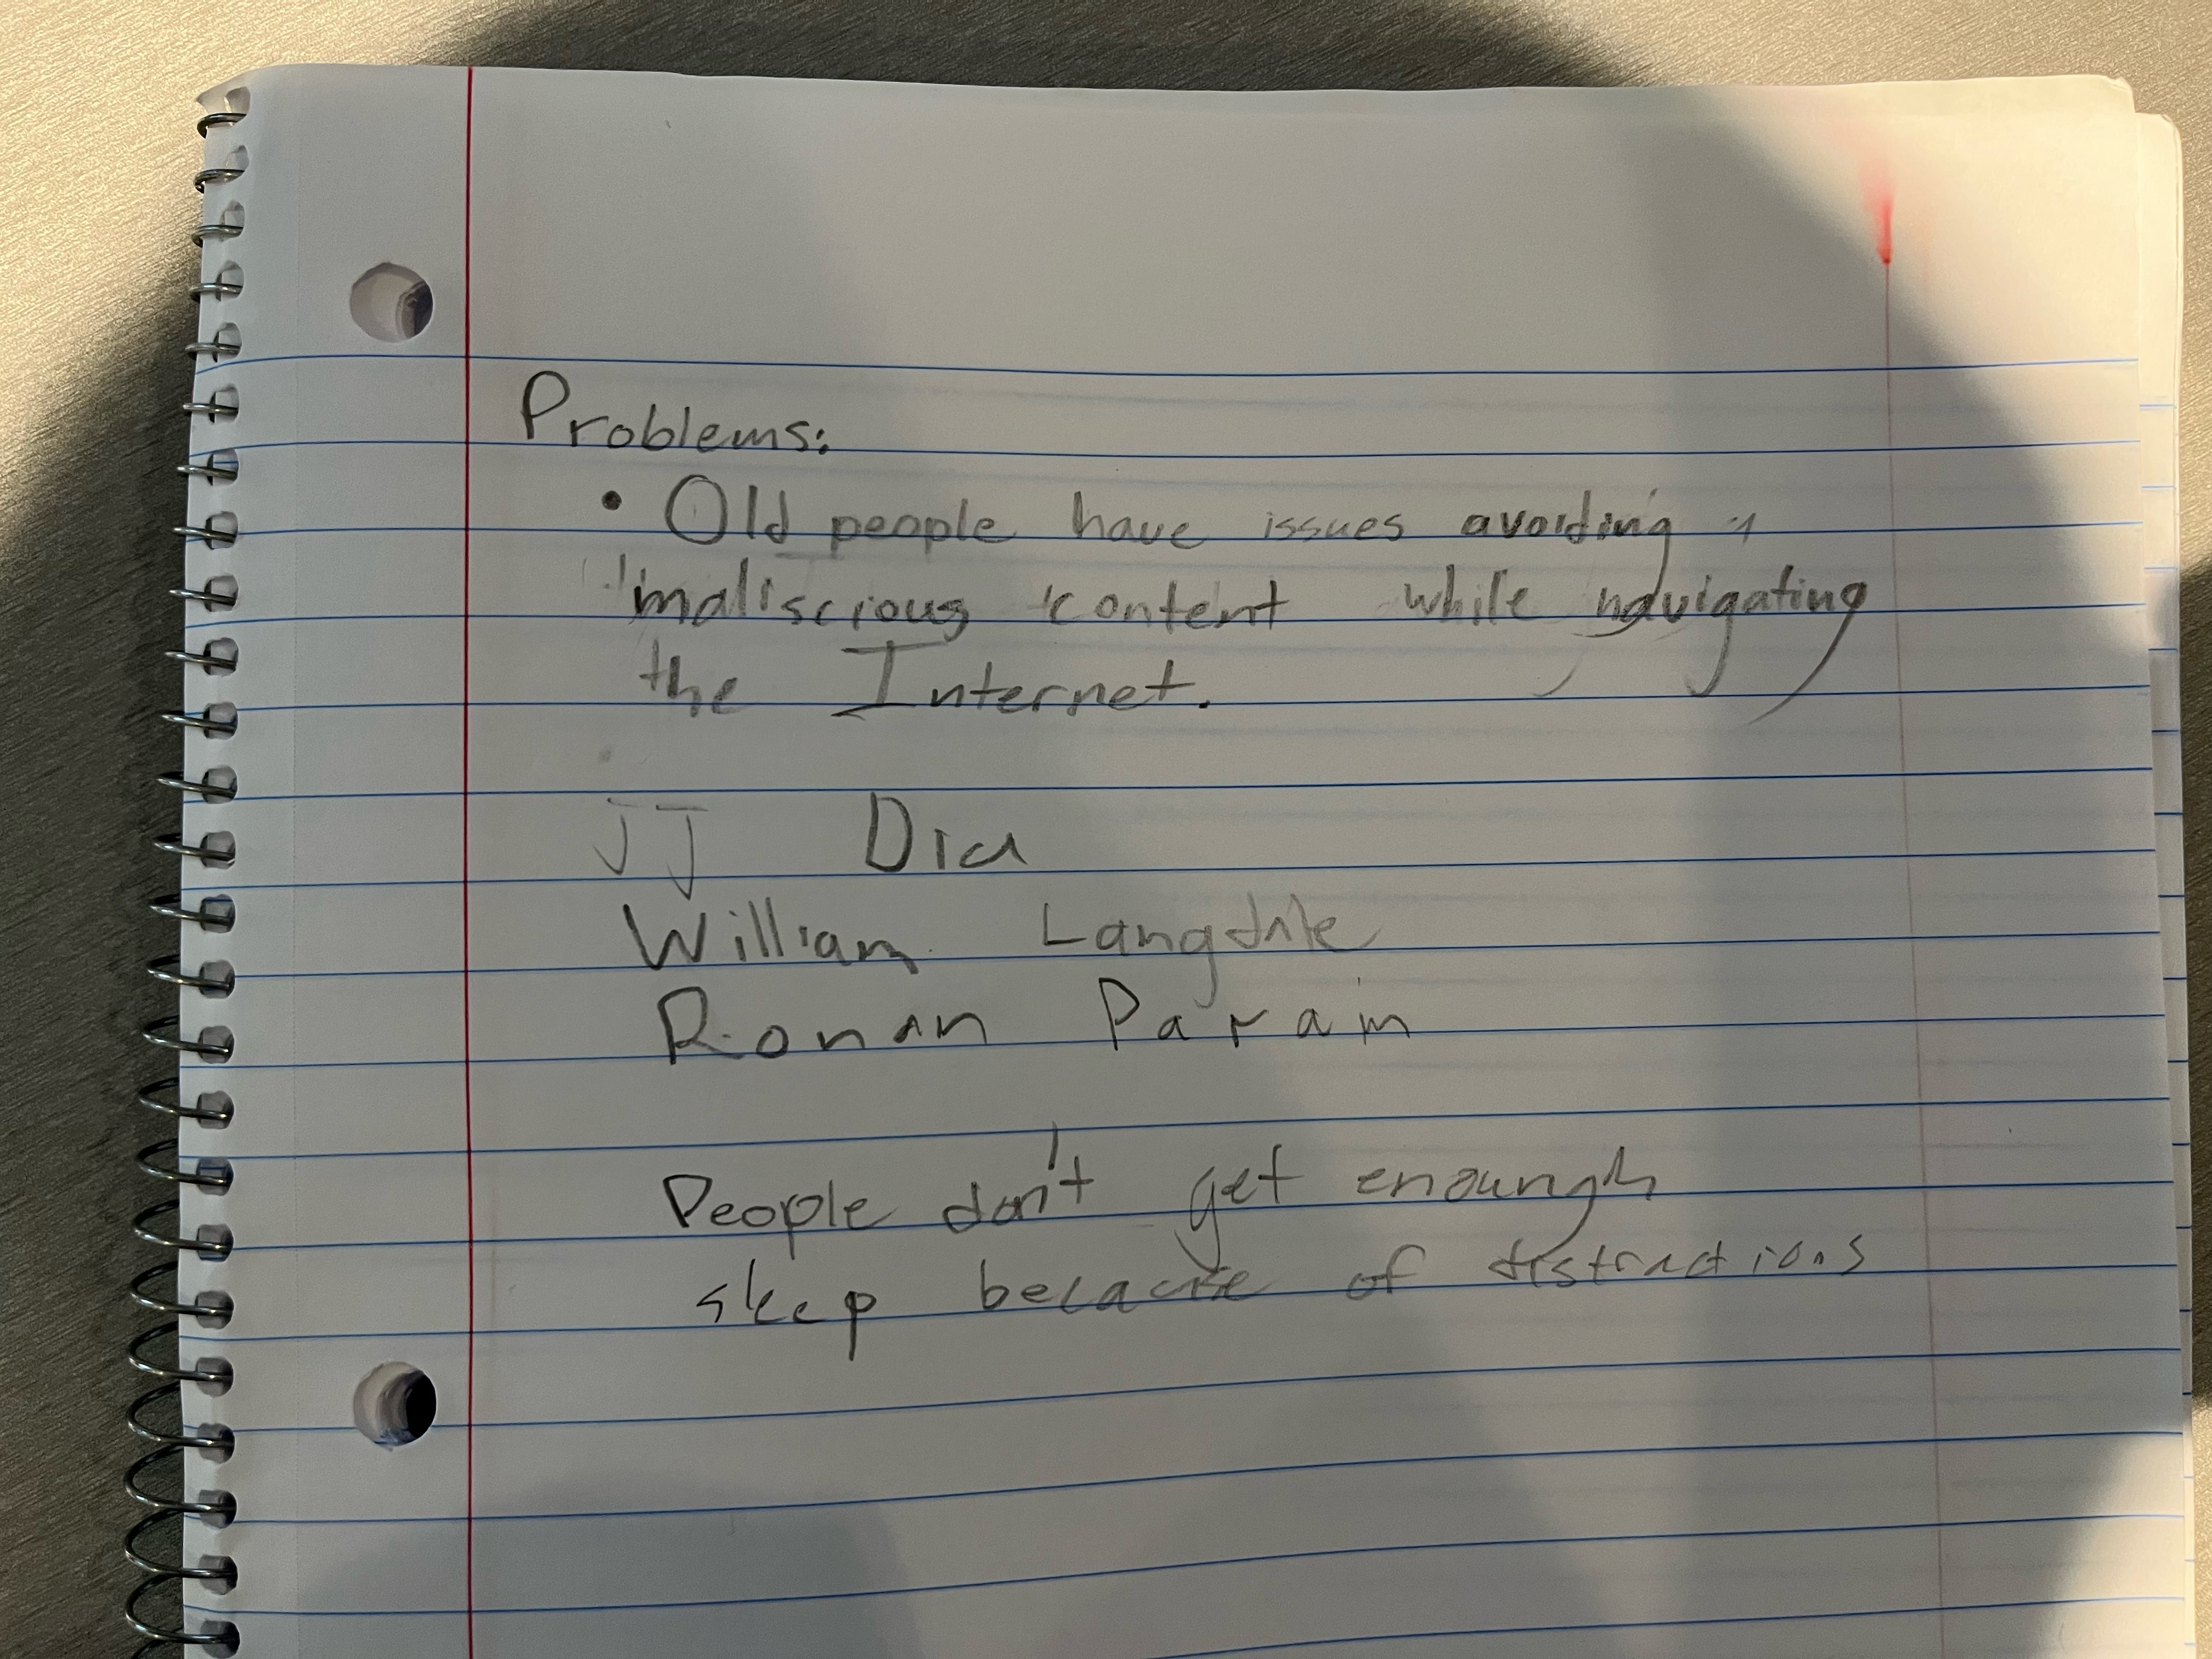 Problems:
• Old people have issues avoiding
maliscious content while navigating
the Internet.
JJ Dia
William Langdale
Ronan Param
People don't get enoungh
sleep because of distractions